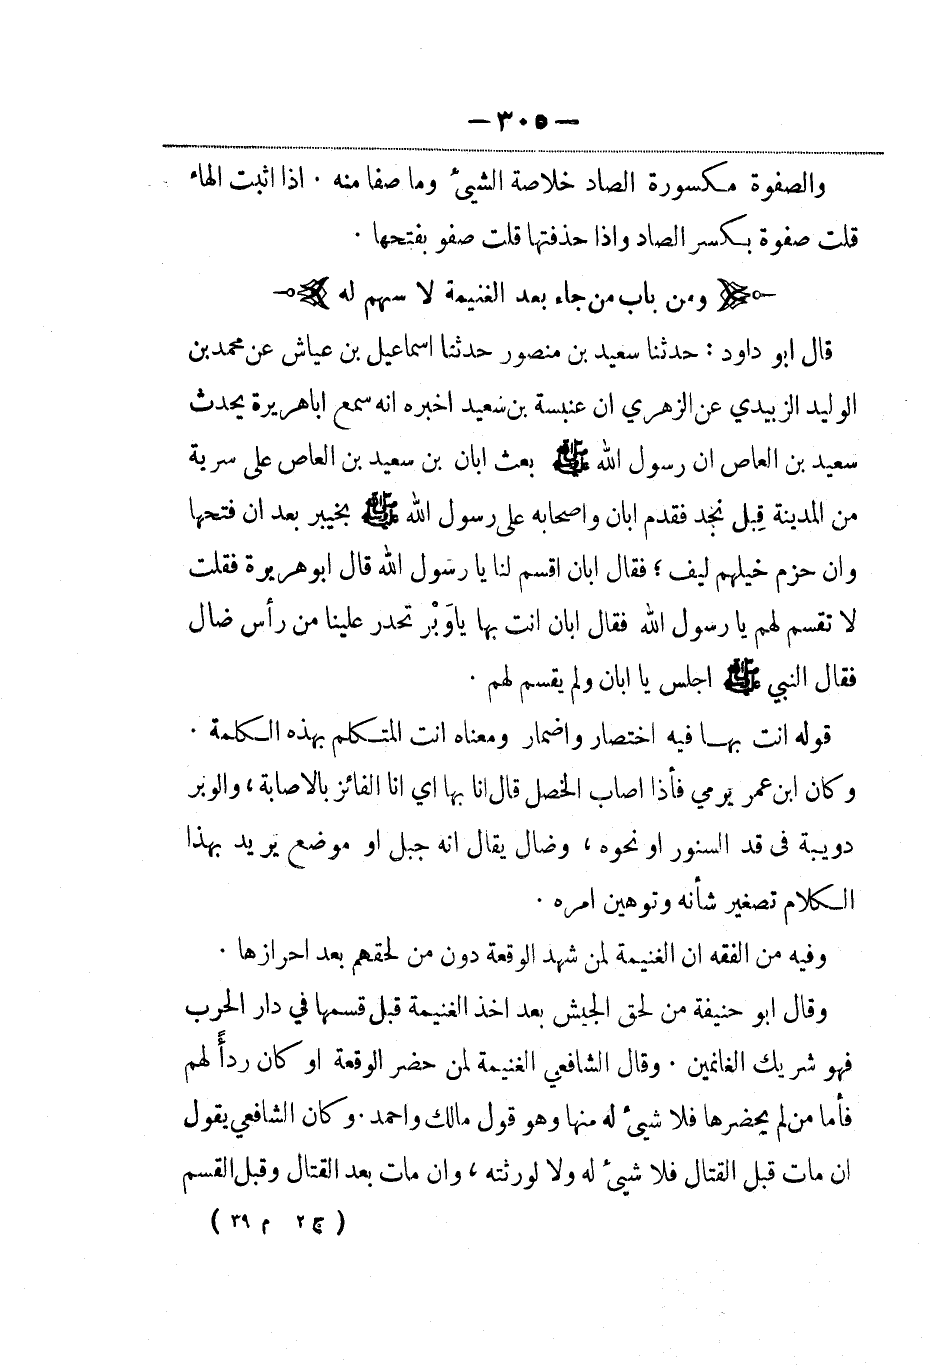 — ٣٠٥ —
والصفوة مكسورة الصاد خلاصة الشيئ وما صفا منه . اذا اثبت الهاء
قلت صفوة بكسر الصاد واذا حذفتها قلت صفو بفتحها .
ومن باب من جاء بعد الغنيمة لا سهم له
قال ابو داود : حدثنا سعيد بن منصور حدثنا اسماعيل بن عياش عن محمد بن
الوليد الزبيدي عن الزهري ان عنبسة بن سعيد اخبره انه سمع اباهريرة يحدث
سعيد بن العاص ان رسول الله ﷺ بعث ابان بن سعيد بن العاص على سرية
من المدينة قِبل نجد فقدم ابان واصحابه على رسول الله ﷺ بخيبر بعد ان فتحها
وان حزم خيلهم ليف ؛ فقال ابان اقسم لنا يا رسول الله قال ابوهريرة فقلت
لا تقسم لهم يا رسول الله فقال ابان انت بها ياوَبْر تحدر علينا من رأس ضال
فقال النبي ﷺ اجلس يا ابان ولم يقسم لهم .
قوله انت بهـا فيه اختصار واضمار ومعناه انت المتكلم بهذه الكلمة .
وكان ابن عمر يرمي فأذا اصاب الخصل قال انا بها اي انا الفائز بالاصابة ، والوبر
دويبة فى قد السنور او نحوه ، وضال يقال انه جبل او موضع يريد بهذا
الكلام تصغير شأنه وتوهين امره .
وفيه من الفقه ان الغنيمة لمن شهد الوقعة دون من لحقهم بعد احرازها .
وقال ابو حنيفة من لحق الجيش بعد اخذ الغنيمة قبل قسمها في دار الحرب
فهو شريك الغانمين . وقال الشافعي الغنيمة لمن حضر الوقعة او كان ردأً لهم
فأما من لم يحضرها فلا شيئ له منها وهو قول مالك واحمد . وكان الشافعي يقول
ان مات قبل القتال فلا شيئ له ولا لورثته ، وان مات بعد القتال وقبل القسم
( ج ٢ م ٣٩ )